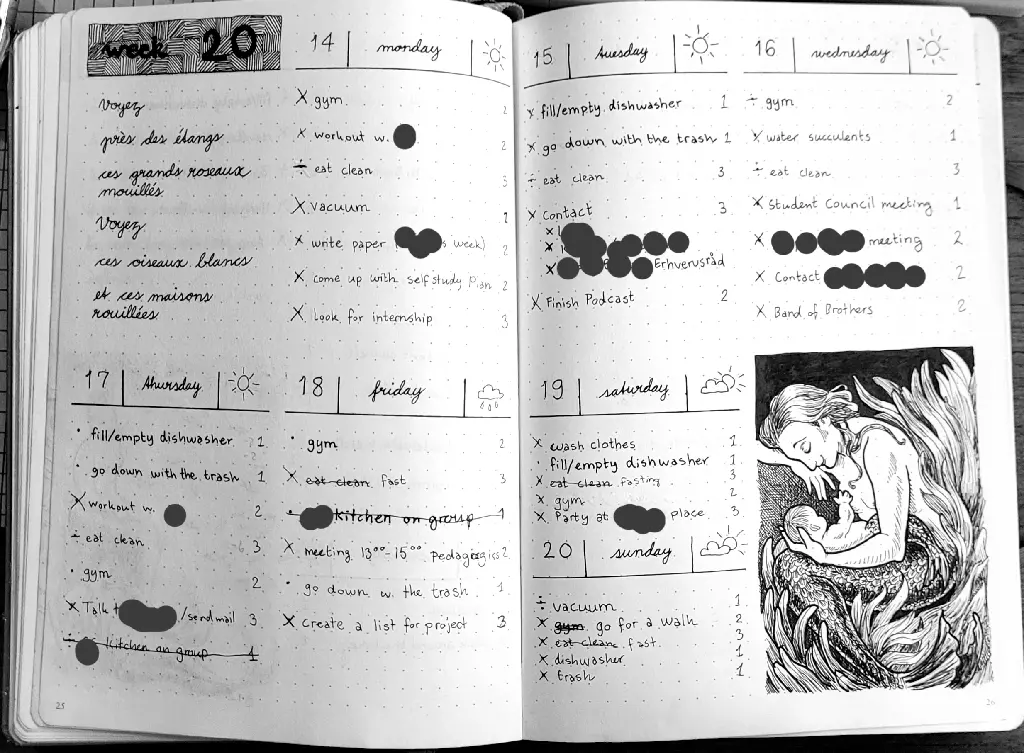 week 20
Voyez
près des étangs
ces grands roseaux
mouillés
Voyez
ces oiseaux blancs
et ces maisons
rouillées
14 monday
X gym 2
X workout w. 2
÷ eat clean 3
X vacuum
X write paper s week) 2
X come up with self study plan 2
X look for internship 3
15 tuesday
X fill/empty dishwasher 1
X go down with the trash 1
÷ eat clean 3
X Contact 3
X
X
X Erhvervsråd
X Finish Podcast 2
16 wednesday
÷ gym 2
X water succulents 1
÷ eat clean 3
X Student Council meeting 1
X meeting 2
X Contact 2
X Band of Brothers 2
17 thursday
· fill/empty dishwasher 1
· go down with the trash 1
X workout w. 2
÷ eat clean 3
· gym 2
X Talk /send mail 3
÷ kitchen an group 1
25
18 friday
· gym 2
X eat clean fast 3
· kitchen an group 1
X meeting 13⁰⁰-15⁰⁰ pedagogics 2
· go down w. the trash 1
X create a list for project 3
19 saturday
X wash clothes 1
· fill/empty dishwasher 1
X eat clean fasting 3
X gym 2
X Party at place 3
20 sunday
÷ vacuum 1
X gym go for a walk 2
X eat clean fast 3
X dishwasher 1
X trash 1
26